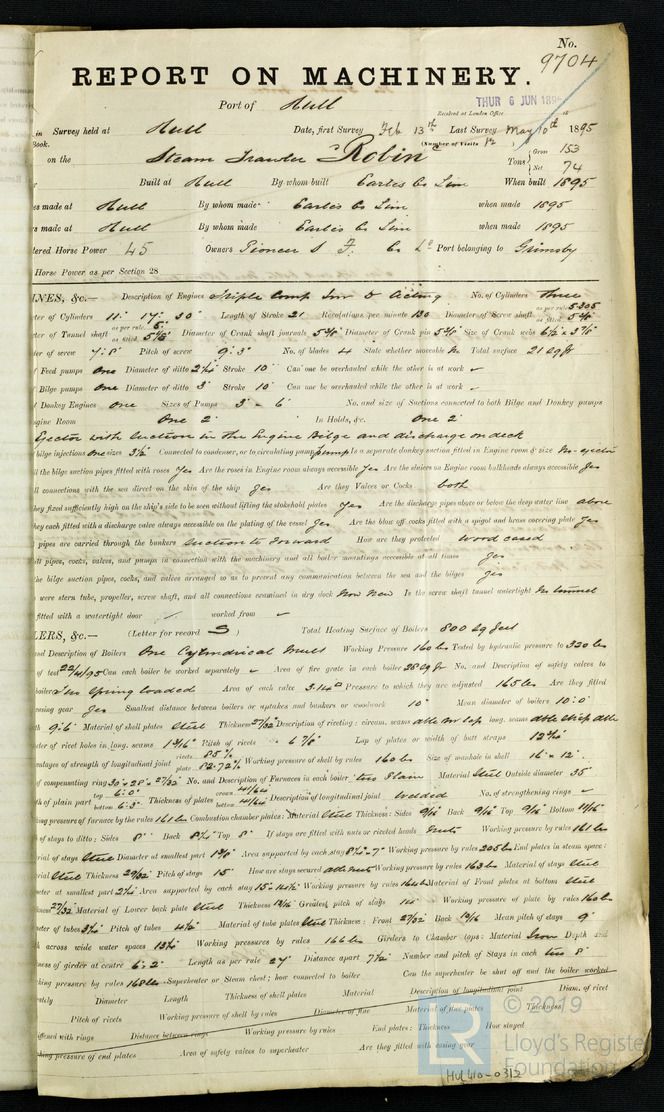 No.
9704
REPORT ON MACHINERY.
Port of Hull
THUR 6 JUN 189
Received at London Office 18
in Survey held at Hull Date, first Survey Feb 13th Last Survey May 10th 1895
Book. (Number of Visits 12)
on the Steam Trawler "Robin" Tons { Gross 153
Net 74
Built at Hull By whom built Earles Co Lim When built 1895
es made at Hull By whom made Earles Co Lim when made 1895
rs made at Hull By whom made Earles Co Lim when made 1895
tered Horse Power 45 Owners Pioneer S F. Co Ld Port belonging to Grimsby
Horse Power as per Section 28
INES, &c.— Description of Engines Triple Comp Inv D Acting No. of Cylinders Three
ter of Cylinders 11" 17" 30" Length of Stroke 21 Revolutions per minute 130 Diameter of Screw shaft as per rule 5.305 as fitted
ter of Tunnel shaft as per rule as fitted Diameter of Crank shaft journals Diameter of Crank pin Size of Crank webs
ter of screw 7'8" Pitch of screw 9'3" No. of blades 4 State whether moveable No Total surface 21 sq ft
of Feed pumps One Diameter of ditto Stroke 10" Can one be overhauled while the other is at work ✓
Bilge pumps One Diameter of ditto 3" Stroke 10" Can one be overhauled while the other is at work ✓
Donkey Engines One Sizes of Pumps 3" - 6" No. and size of Suctions connected to both Bilge and Donkey pumps
ngine Room One 2" In Holds, &c. One 2"
Ejector with suction in the Engine Bilge and discharge on deck
bilge injections One sizes 3½" Connected to condenser, or to circulating pump pump Is a separate donkey suction fitted in Engine room & size No - ejector
ll the bilge suction pipes fitted with roses Yes Are the roses in Engine room always accessible Yes Are the sluices on Engine room bulkheads always accessible Yes
ll connections with the sea direct on the skin of the ship Yes Are they Valves or Cocks both
they fixed sufficiently high on the ship's side to be seen without lifting the stokehold plates Yes Are the discharge pipes above or below the deep water line above
hey each fitted with a discharge valve always accessible on the plating of the vessel Yes Are the blow off cocks fitted with a spigot and brass covering plate Yes
pipes are carried through the bunkers Suction to Forward How are they protected Wood cased
ll pipes, cocks, valves, and pumps in connection with the machinery and all boiler mountings accessible at all times Yes
he bilge suction pipes, cocks, and valves arranged so as to prevent any communication between the sea and the bilges Yes
n were stern tube, propeller, screw shaft, and all connections examined in dry dock Now New Is the screw shaft tunnel watertight No tunnel
fitted with a watertight door ✓ worked from ✓
LERS, &c.— (Letter for record S) Total Heating Surface of Boilers 800 sq feet
and Description of Boilers One Cylindrical Mult Working Pressure 160 lbs Tested by hydraulic pressure to 320 lbs
of test 22/4/95 Can each boiler be worked separately ✓ Area of fire grate in each boiler 28 sq ft No. and Description of safety valves to
boiler Two Spring loaded Area of each valve 3.14" Pressure to which they are adjusted 165 lbs Are they fitted
easing gear Yes Smallest distance between boilers or uptakes and bunkers or woodwork 10" Mean diameter of boilers 10'0"
th 9'6" Material of shell plates Steel Thickness 27/32 Description of riveting: circum. seams dble riv lap long. seams dble strap dble
ter of rivet holes in long. seams Pitch of rivets Lap of plates or width of butt straps
centages of strength of longitudinal joint rivets 85% plate 82.72% Working pressure of shell by rules 160 lbs Size of manhole in shell 16" × 12"
of compensating ring No. and Description of Furnaces in each boiler two Plain Material Steel Outside diameter 35
th of plain part top 6'0" bottom 6'3" Thickness of plates crown 41/64 bottom 41/64 Description of longitudinal joint Welded No. of strengthening rings ✓
king pressure of furnace by the rules 161 lbs Combustion chamber plates: Material Steel Thickness: Sides 9/16 Back 9/16 Top 9/16 Bottom 11/16
of stays to ditto: Sides 8" Back Top 8" If stays are fitted with nuts or riveted heads Nuts Working pressure by rules 161 lbs
rial of stays Steel Diameter at smallest part Area supported by each stay Working pressure by rules 205 lbs End plates in steam space:
rial Steel Thickness 29/32 Pitch of stays 15" How are stays secured dble nuts Working pressure by rules 163 lbs Material of stays Steel
meter at smallest part Area supported by each stay Working pressure by rules 164 lbs Material of Front plates at bottom Steel
kness 27/32 Material of Lower back plate Steel Thickness Greatest pitch of stays Working pressure of plate by rules 160 lbs
meter of tubes Pitch of tubes Material of tube plates Steel Thickness: Front 27/32 Back Mean pitch of stays 9"
h across wide water spaces Working pressures by rules 166 lbs Girders to Chamber tops: Material Iron Depth and
ness of girder at centre Length as per rule 27" Distance apart 7½ Number and pitch of Stays in each two 8"
king pressure by rules 168 lbs Superheater or Steam chest; how connected to boiler Can the superheater be shut off and the boiler worked
rately Diameter Length Thickness of shell plates Material Description of longitudinal joint Diam. of rivet
Pitch of rivets Working pressure of shell by rules Diameter of flue Material of flue plates Thickness
ffened with rings Distance between rings Working pressure by rules End plates: Thickness How stayed
king pressure of end plates Area of safety valves to superheater Are they fitted with easing gear
© 2019
Lloyd's Register
Foundation
HUL410-0312